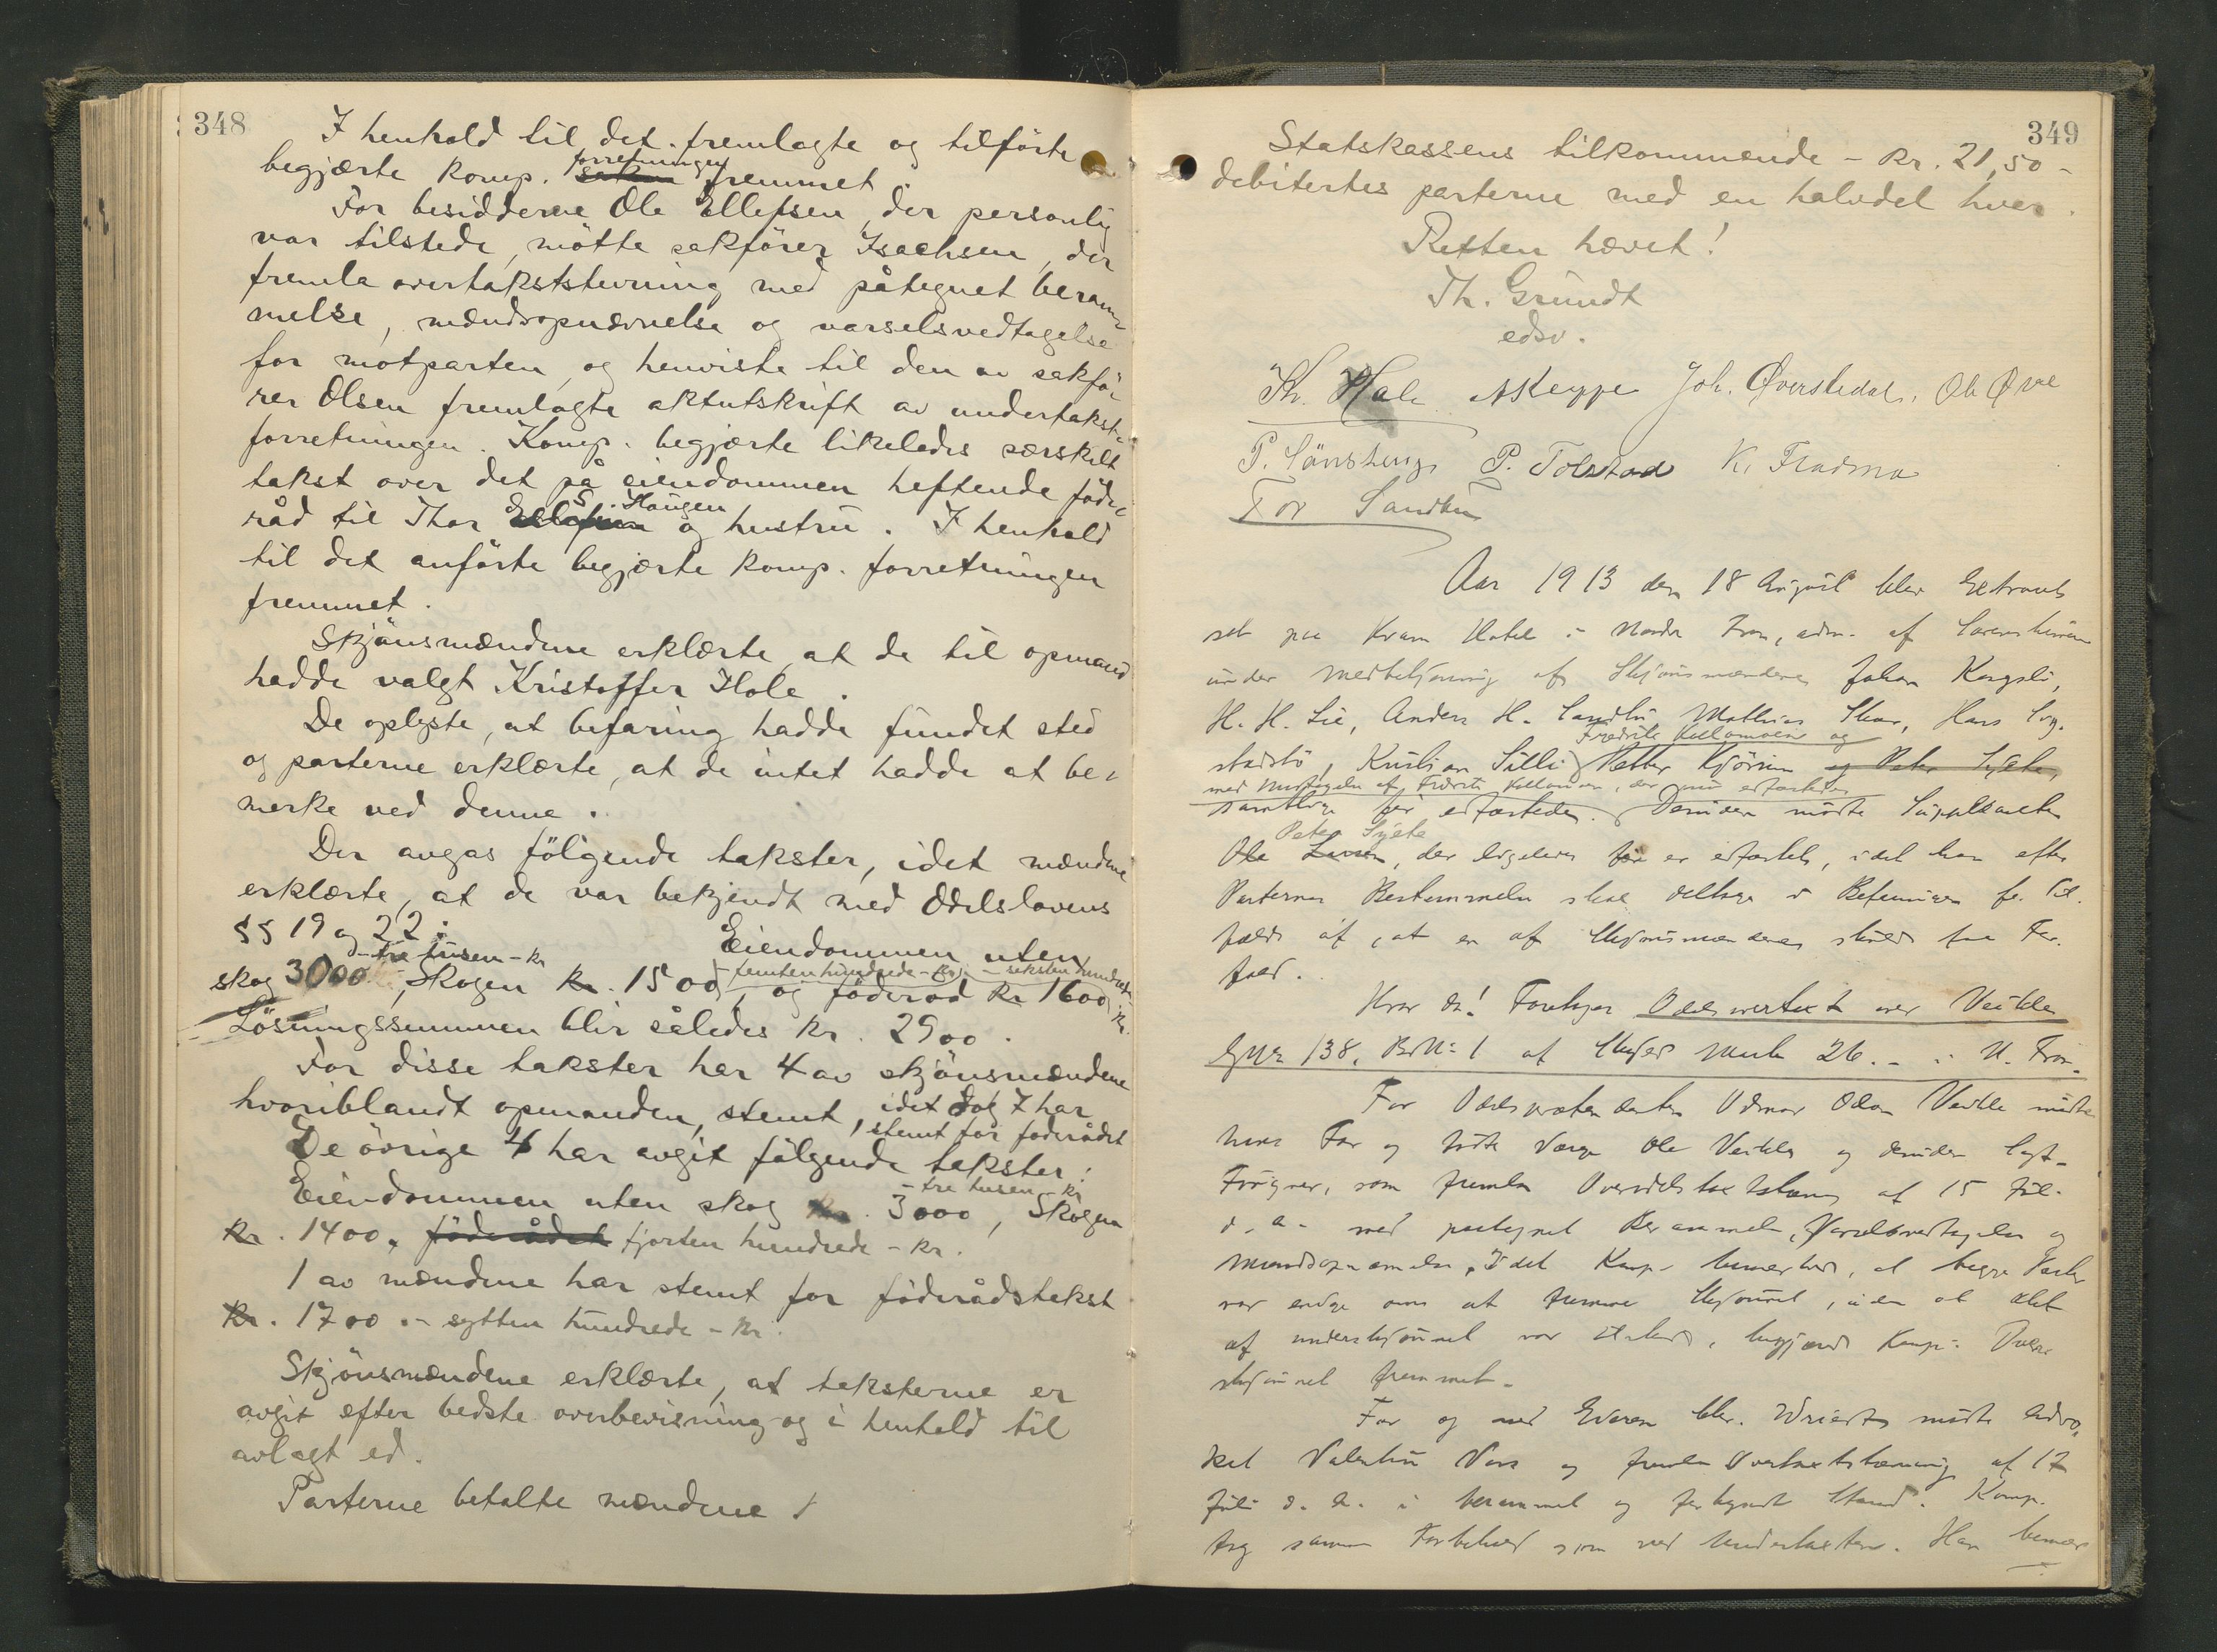 348
I henhold til det fremlagte og tilførte
begjærte komp. saken forretningen fremmet.
For besidderne Ole Ellefsen, der personlig
var tilstede, møtte sakfører Isachsen, der
fremla overtakststevning med påtegnet beram-
melse, mændsopnævnelse og varselsvedtagelse
for motparten, og henviste til den av sakfø-
rer Olsen fremlagte aktutskrift av undertakst-
forretningen. Komp. begjærte likeledes særskilt
takst over det på eiendommen heftende føde-
råd til Thor Ellefsen S. Haugen og hustru. I henhold
til det anførte begjærte komp. forretningen
fremmet.
Skjønsmændene erklærte, at de til opmand
hadde valgt Kristoffer Hole.
De oplyste, at befaring hadde fundet sted
og parterne erklærte, at de intet hadde at be-
merke ved denne.
Der avgas følgende takster, idet mændene
erklærte, at de var bekjendt med Odelslovens
§§ 19 og 22: Eiendommen uten
skog 3000 - tre tusen - kr, skogen kr. 1500 - femtenhundrede - kr, og føderåd kr 1600 - seksten hundrede - kr.
Løsningssummen blir således kr. 2900.
For disse takster har 4 av skjønsmændene
hvoriblandt opmanden, stemt, idet dog 7 har
stemt for føderådet
De øvrige 4 har avgit følgende takster:
Eiendommen uten skog kr. 3000 - tre tusen - kr, Skogen
kr. 1400, føderådet fjorten hundrede - kr.
1 av mændene har stemt for føderådstakst
kr. 1700 - sytten hundrede - kr.
Skjønsmændene erklærte, at taksterne er
avgit efter bedste overbevisning og i henhold til
avlagt ed.
Parterne betalte mændene
349
Statskassens tilkommende - kr. 21,50 -
debitertes parterne med en halvdel hver.
Retten hævet!
Th. Grundt
edsv.
Kr. Hole A Skeppe Joh. Øverstedal. Ole Øvre
P. Sønsteng P. Tolstad K.
Tor Sandbu
Aar 1913 den 18 August blev Extraret
sat paa Kvam Hotel i Nordre Fron, adm. af Sorenskriveren
under Medbetjening af Skjønsmændene Johan Kongsli,
H. H. Lie, Anders H. Sandbu, Mathias Skar, Hans Syg-
stadslø, Kristian Sulli, Fredrik Kollomoen og Petter Kjørum og Peter Sylte,
med Undtagelse af Fredrik Kollomoen, der nu edfæstedes
samtlige før edfæstede. Desuden mødte Suppleanten
Ole Larsen Peter Sylte, der ligeledes før er edfæstet, idet han efter
Parternes Bestemmelse skal deltage i Befaringen for Til-
fælde af, at en af Skjønsmændene skulde faa For-
fald.
Hvor da! Foretoges Odelsovertaxt over Veikle
GNr 138, BrNr 1 af Skyld Mark 26.- i N. Fron.
For Odelsprætendenten Odmar Olson Veikle mødte
hans Far og fødte Værge Ole Veikle og desuden Sagf.
Frisner, som fremla Overodelstaxtstævning af 15 Juli
d. A. med paategnet Berammelse, Varselsvedtagelse og
Mændsopnævnelse. Idet Komp. bemærkede, at begge Parter
var enige om at fremme Skjønnet, uden at Akt
af underskjønnet var tilstede, begjærede Komp. Over-
skjønnet fremmet.
For og med Eieren mødte Advo-
kat Valentin Voss og fremla Overtaxtstævning af 17
Juli d. A. i berammet og forkyndt Stand. Komp.
tog samme Forbehold som ved Undertaxten. Han bemær-